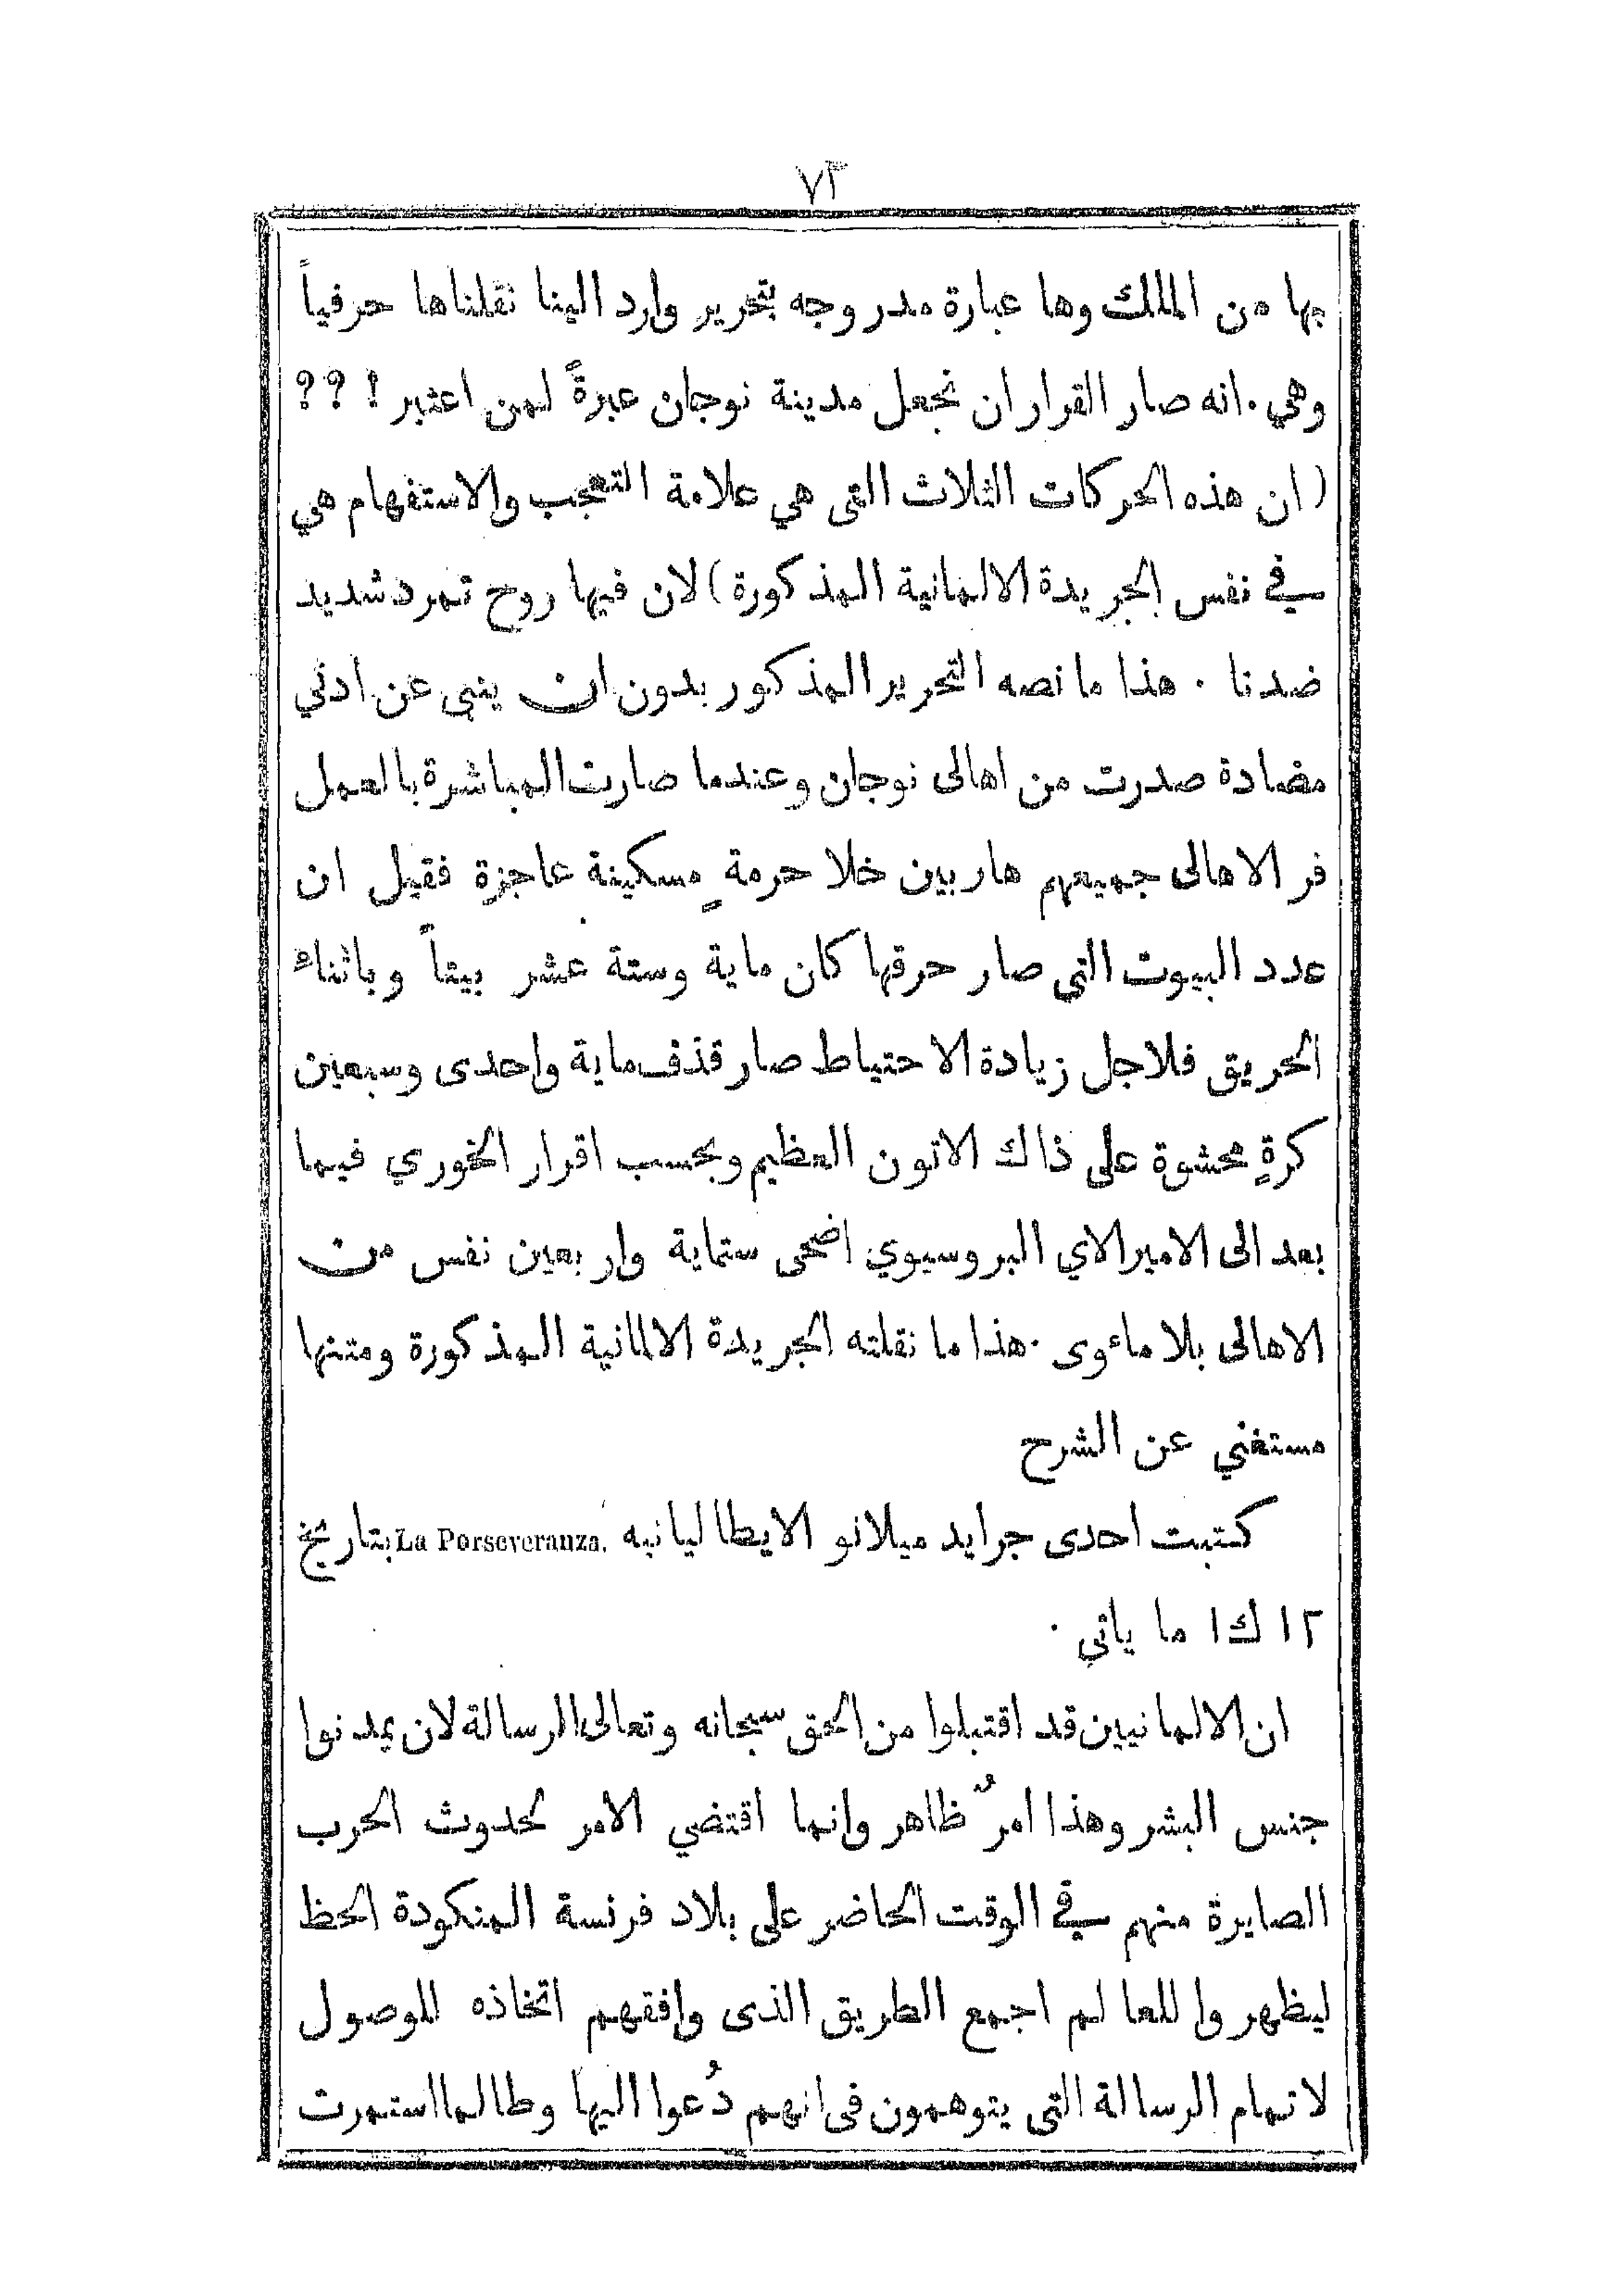 ٧٣
بها من الملك وها عبارة مدروجه بتحرير وارد الينا نقلناها حرفياً
وهي . انه صار القرار ان نجعل مدينة نوجان عبرةً لمن اعتبر ! ? ?
( ان هذه الحركات الثلاث التى هي علامة التعجب والاستفهام هي
في نفس الجريدة الالمانية المذكورة ) لان فيها روح تمرد شديد
ضدنا . هذا ما نصه التحرير المذكور بدون ان ينبي عن ادنى
مضادة صدرت من اهالى نوجان وعندما صارت المباشرة بالعمل
فر الاهالى جميعهم هاربين خلا حرمةٍ مسكينة عاجزة فقيل ان
عدد البيوت التي صار حرقها كان ماية وستة عشر بيتاً وباثناء
الحريق فلاجل زيادة الاحتياط صار قذف ماية واحدى وسبعين
كرةٍ محشوة على ذاك الاتون العظيم وبحسب اقرار الخوري فيما
بعد الى الاميرالاي البروسيوي اضحى ستماية واربعين نفس من
الاهالى بلا ماءوى . هذا ما نقلته الجريدة الالمانية المذكورة ومتنها
مستغني عن الشرح
كتبت احدى جرايد ميلانو الايطاليانيه La Perseveranza. بتاريخ
١٢ ك١ ما ياتي .
ان الالمانيين قد اقتبلوا من الحق سبحانه وتعالى الرسالة لان يمدنوا
جنس البشر وهذا امرٌ ظاهر وانما اقتضي الامر لحدوث الحرب
الصايرة منهم في الوقت الحاضر على بلاد فرنسة المنكودة الحظ
ليظهروا للعالم اجمع الطريق الذى وافقهم اتخاذه للوصول
لاتمام الرسالة التي يتوهمون فى انهم دُعوا اليها وطالما استمرت